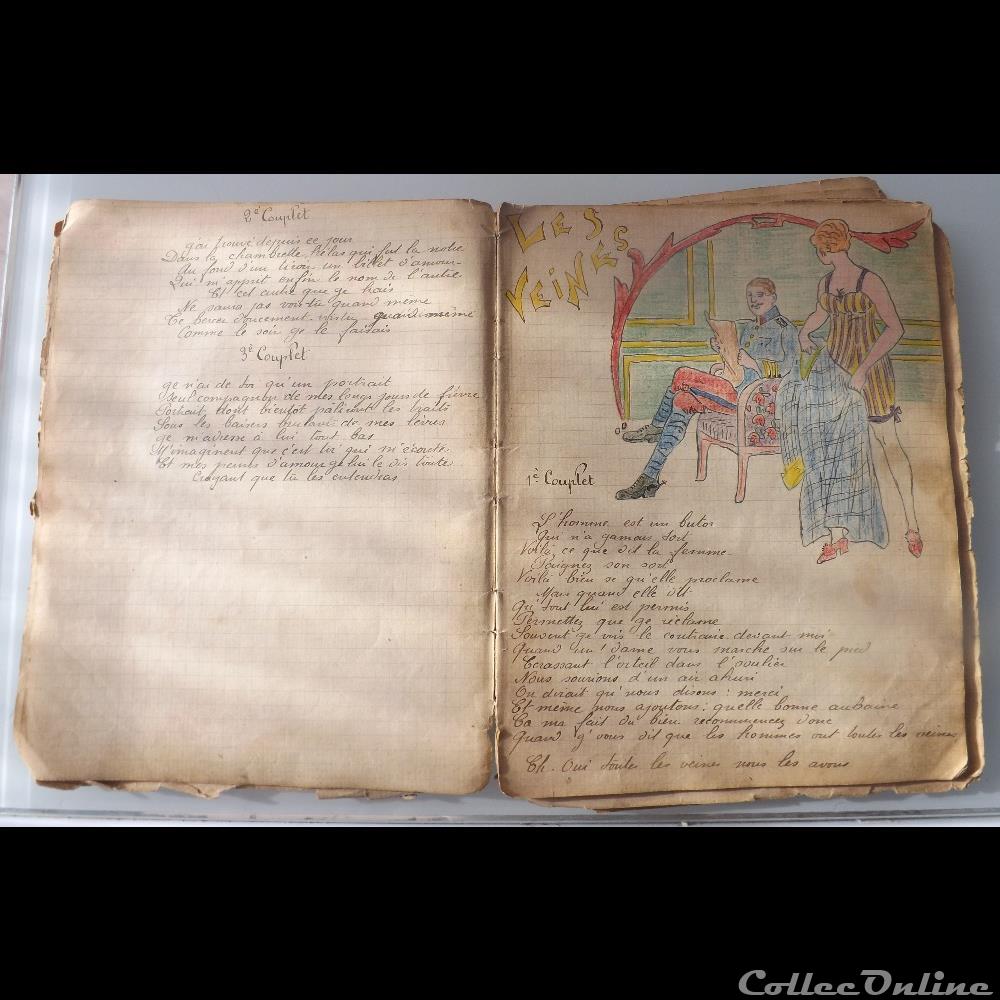 2e Couplet
gai trouvé depuis ce jour
Dans la chambrette hélas qui fut la notre
Au fond d'un tiroir un billet d'amour
Qui m'apprit enfin le nom de l'autre
Et cet autre que ge hais
Ne saura pas vois tu quand même
Te bercer doucement quand même
Comme le soir ge le faisais
3e Couplet
ge n'ai de toi qu'un portrait
Seul compagnon de mes longs jours de fièvre
Portrait dont bientot paliront les traits
Sous les baisers brulants de mes lèvres
ge m'adresse à lui tout bas
M'imaginent que c'est toi qui m'écoute
Et mes peines d'amour ge lui le dis toute
Croyant que tu les entendras
LES
VEINÉS
1e Couplet
L'homme est un butor
Qui n'a gamais tort
Voilà ce que dit la femme
Soignez son sort
Voilà bien se qu'elle proclame
Mais quand elle dit
Qu'tout lui est permis
Permettez que ge réclame
Souvent ge vois le contraire devant moi
Quand un' dame vous marche sur le pied
Ecrassant l'orteil dans l'soulier
Nous sourions d'un air ahuri
On dirait qu'nous disons : merci
Et même nous ajoutons : quelle bonne aubaine
Ca ma fait du bien recommencez donc
Quand g'vous dit que les hommes ont toutes les veines
Ch. Oui toutes les veines nous les avons
CollecOnline